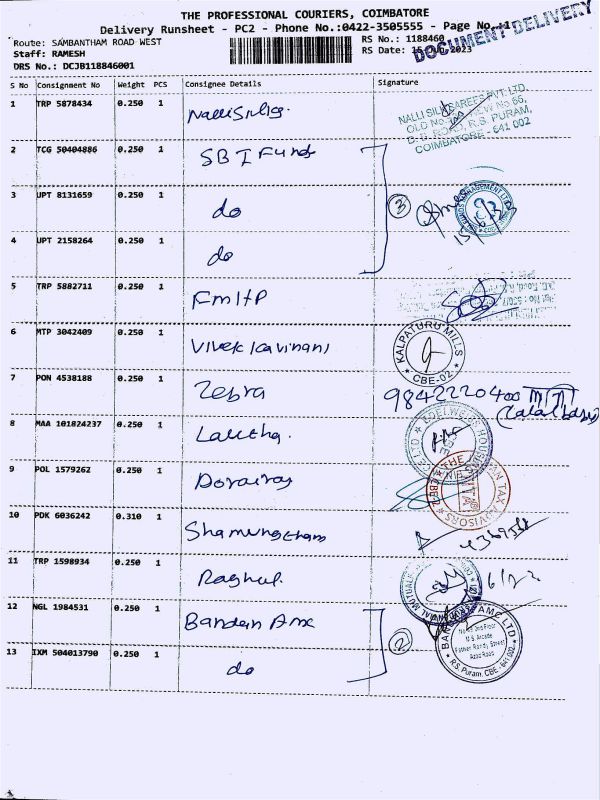 THE PROFESSIONAL COURIERS, COIMBATORE
Delivery Runsheet - PC2 - Phone No.:0422-3505555 - Page No.:1
DOCUMENT DELIVERY
Route: SAMBANTHAM ROAD WEST
RS No.: 1188460
Staff: RAMESH
RS Date: 15 2023
DRS No.: DCJB118846001
S No Consignment No Weight PCS Consignee Details Signature
1 TRP 5878434 0.250 1 Nalli Silks
NALLI SILK SAREES PVT. LTD.
OLD No. NEW No 65,
D. B. ROAD, R.S. PURAM,
COIMBATORE - 641 002
2 TCG 50404886 0.250 1 SBI Funds
3 UPT 8131659 0.250 1 do
3
4 UPT 2158264 0.250 1 do
5 TRP 5882711 0.250 1 FmItP
6 MTP 3042409 0.250 1 Vivek Kavinani
KALPATURU MILLS
CBE-02
7 PON 4538188 0.250 1 Zebra
9842220400
8 MAA 101824237 0.250 1 Lalitha.
EDELWEISS HOUSING
9 POL 1579262 0.250 1 Dorairaj
THE TAX ADVISORS
10 PDK 6036242 0.310 1 Shamungtham
11 TRP 1598934 0.250 1 Raghul.
12 NGL 1984531 0.250 1 Bandan Amc
2
BANDHAN AMC LTD
2nd Floor
M.S. Arcade
Road
R.S. Puram, CBE - 641 002.
13 IXM 504013790 0.250 1 do